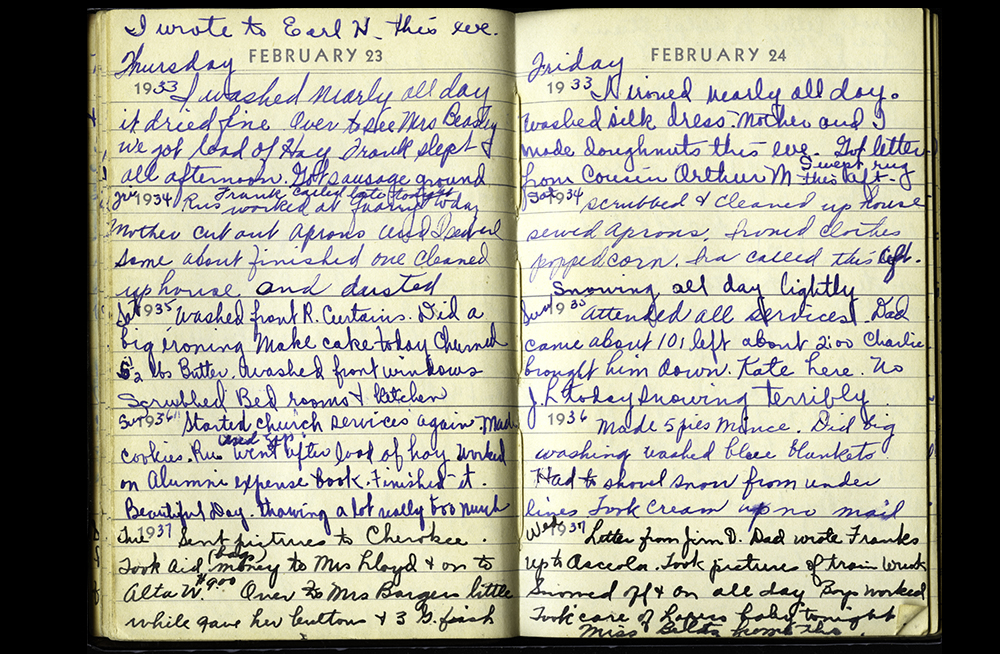 I wrote to Earl N. this eve.
FEBRUARY 23
Thursday
1933 I washed nearly all day
it dried fine. Over to see Mrs Beasley
we got load of Hay Frank slept
all afternoon. Got sausage ground
Frank called late tonight
1934 Rus worked at Quarry today
Mother cut out aprons and I sewed
some about finished one cleaned
up house and dusted
Sat 1935 Washed front R. Curtains. Did a
big ironing Make cake today Churned
lbs Butter. Washed front windows
Scrubbed Bed rooms & kitchen
Sun 1936 Started church services again. Made
cookies. Rus went after load of hay Worked
on Alumni expense book. Finished it.
Beautiful Day. thawing a lot really too much
Tue 1937 Sent pictures to Cherokee.
Took Aid money to Mrs Lloyd & on to
Alta W. $9.00 Over to Mrs Barger little
while gave her buttons & 3 G. fish
FEBRUARY 24
Friday
1933 I ironed nearly all day.
Washed silk dress Mother and I
made doughnuts this eve. Got letter
from Cousin Arthur M I swept rug
this aft.
Sat 1934 scrubbed & cleaned up house
sewed aprons. Ironed clothes
popped corn. Ira called this aft.
Snowing all day lightly
Sun 1935 Attended all services. Dad
came about 10 left about 2:00 Charlie
brought him down. Kate here. No
J.L today Snowing terribly
1936 Made 5 pies Mince. Did big
washing washed blue blankets
Had to shovel snow from under
lines Took cream up no mail
Wed 1937 Letter from Jim D. Dad wrote Franks
up to Osceola. Took pictures of train wreck
Snowed off & on all day Boys worked
Took care of baby tonight
Miss home this